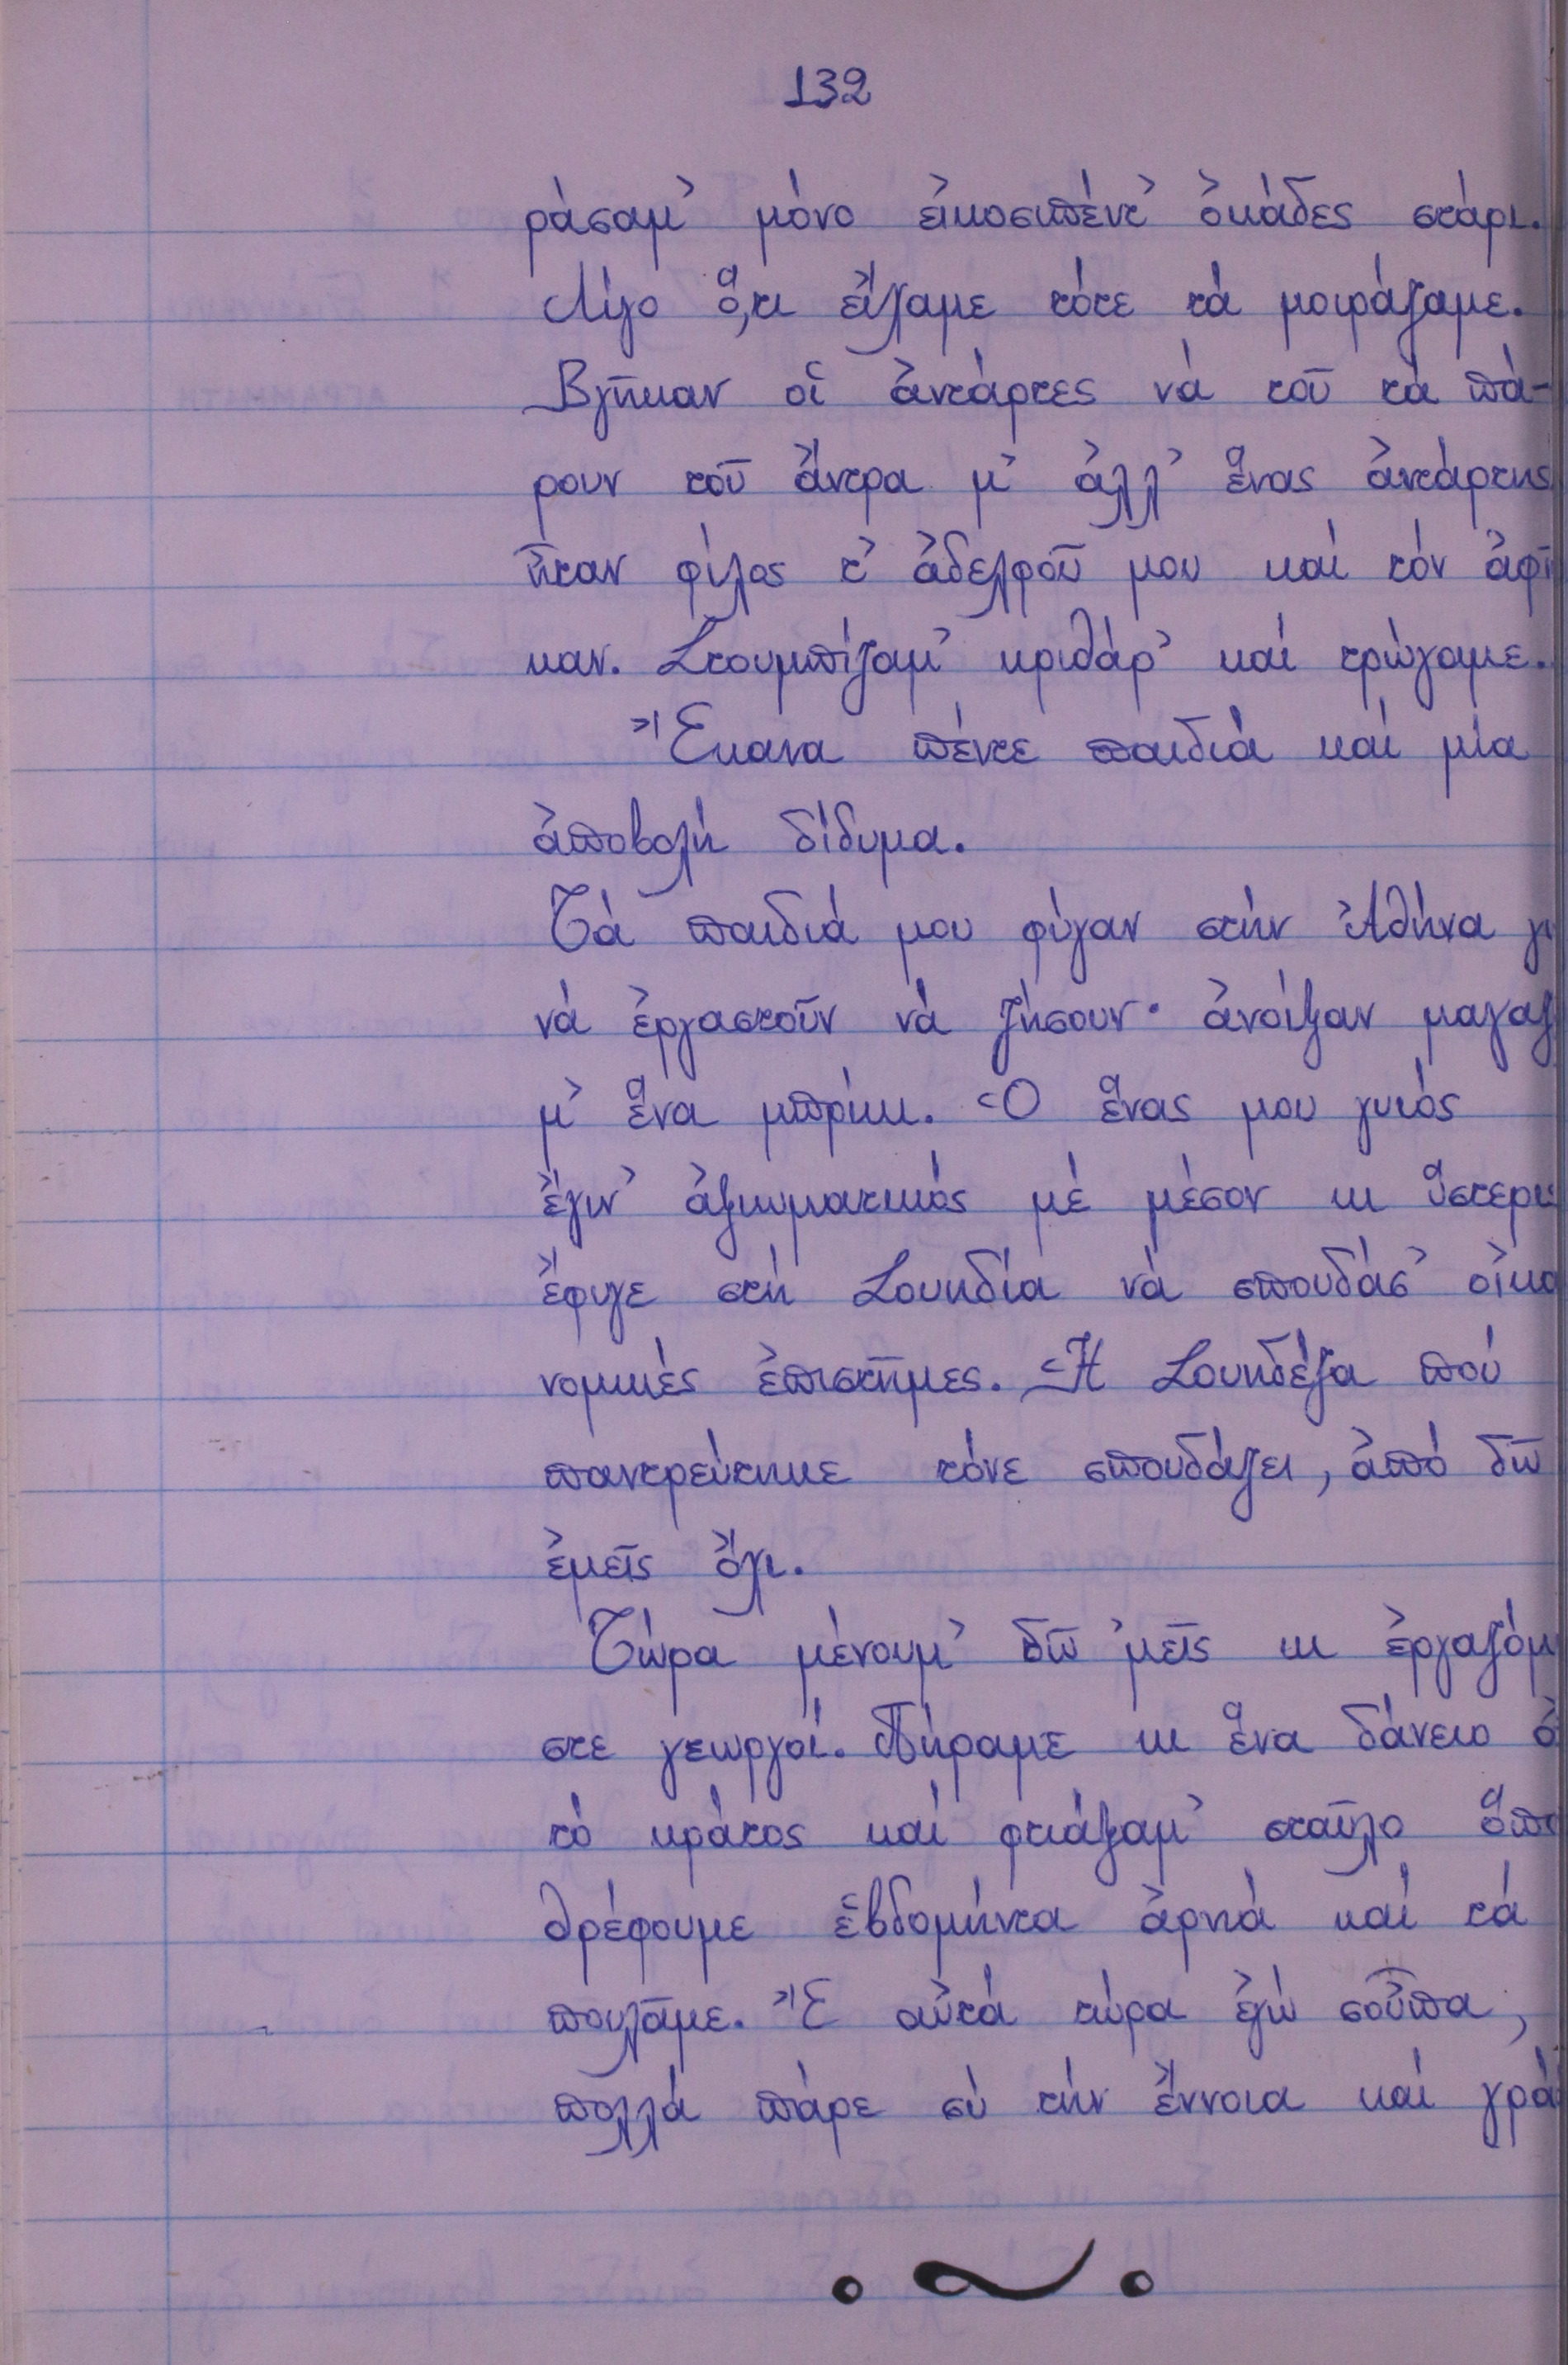 132
ράσαμ' μόνο εἰκοσιπέντ' ὀκάδες στάρι.
Λίγο ὅ,τι εἴχαμε τότε τά μοιράζαμε.
Βγῆκαν οἱ ἀντάρτες νά τοῦ τά πά-
ρουν τοῦ ἄντρα μ' ἀλλ' ἕνας ἀντάρτης
ἦταν φίλος τ' ἀδελφοῦ μου καί τόν ἀφῆ
καν. Στουμπίζαμ' κριθάρ' καί τρώγαμε.
Ἔκανα πέντε παιδιά καί μία
ἀποβολή δίδυμα.
Τά παιδιά μου φύγαν στήν Ἀθήνα γι
νά ἐργαστοῦν νά ζήσουν· ἀνοίξαν μαγαζ
μ' ἕνα μπρίκι. Ὁ ἕνας μου γυιός
ἔγιν' ἀξιωματικός μέ μέσον κι ὕστερις
ἔφυγε στή Σουηδία νά σπουδάσ' οἰκο
νομικές ἐπιστῆμες. Ἡ Σουηδέζα πού
παντρεύτηκε τόνε σπουδάζει, ἀπό δῶ
ἐμεῖς ὄχι.
Τώρα μένουμ' δῶ 'μεῖς κι ἐργαζόμα
στε γεωργοί. Πήραμε κι ἕνα δάνειο ἀ
τό κράτος καί φτιάξαμ' σταῦλο ὅπο
θρέφουμε ἑβδομήντα ἀρνιά καί τά
πουλᾶμε. Ἔ αὐτά τώρα ἐγώ σοὖπα,
πολλά πάρε σύ τήν ἔννοια καί γρά